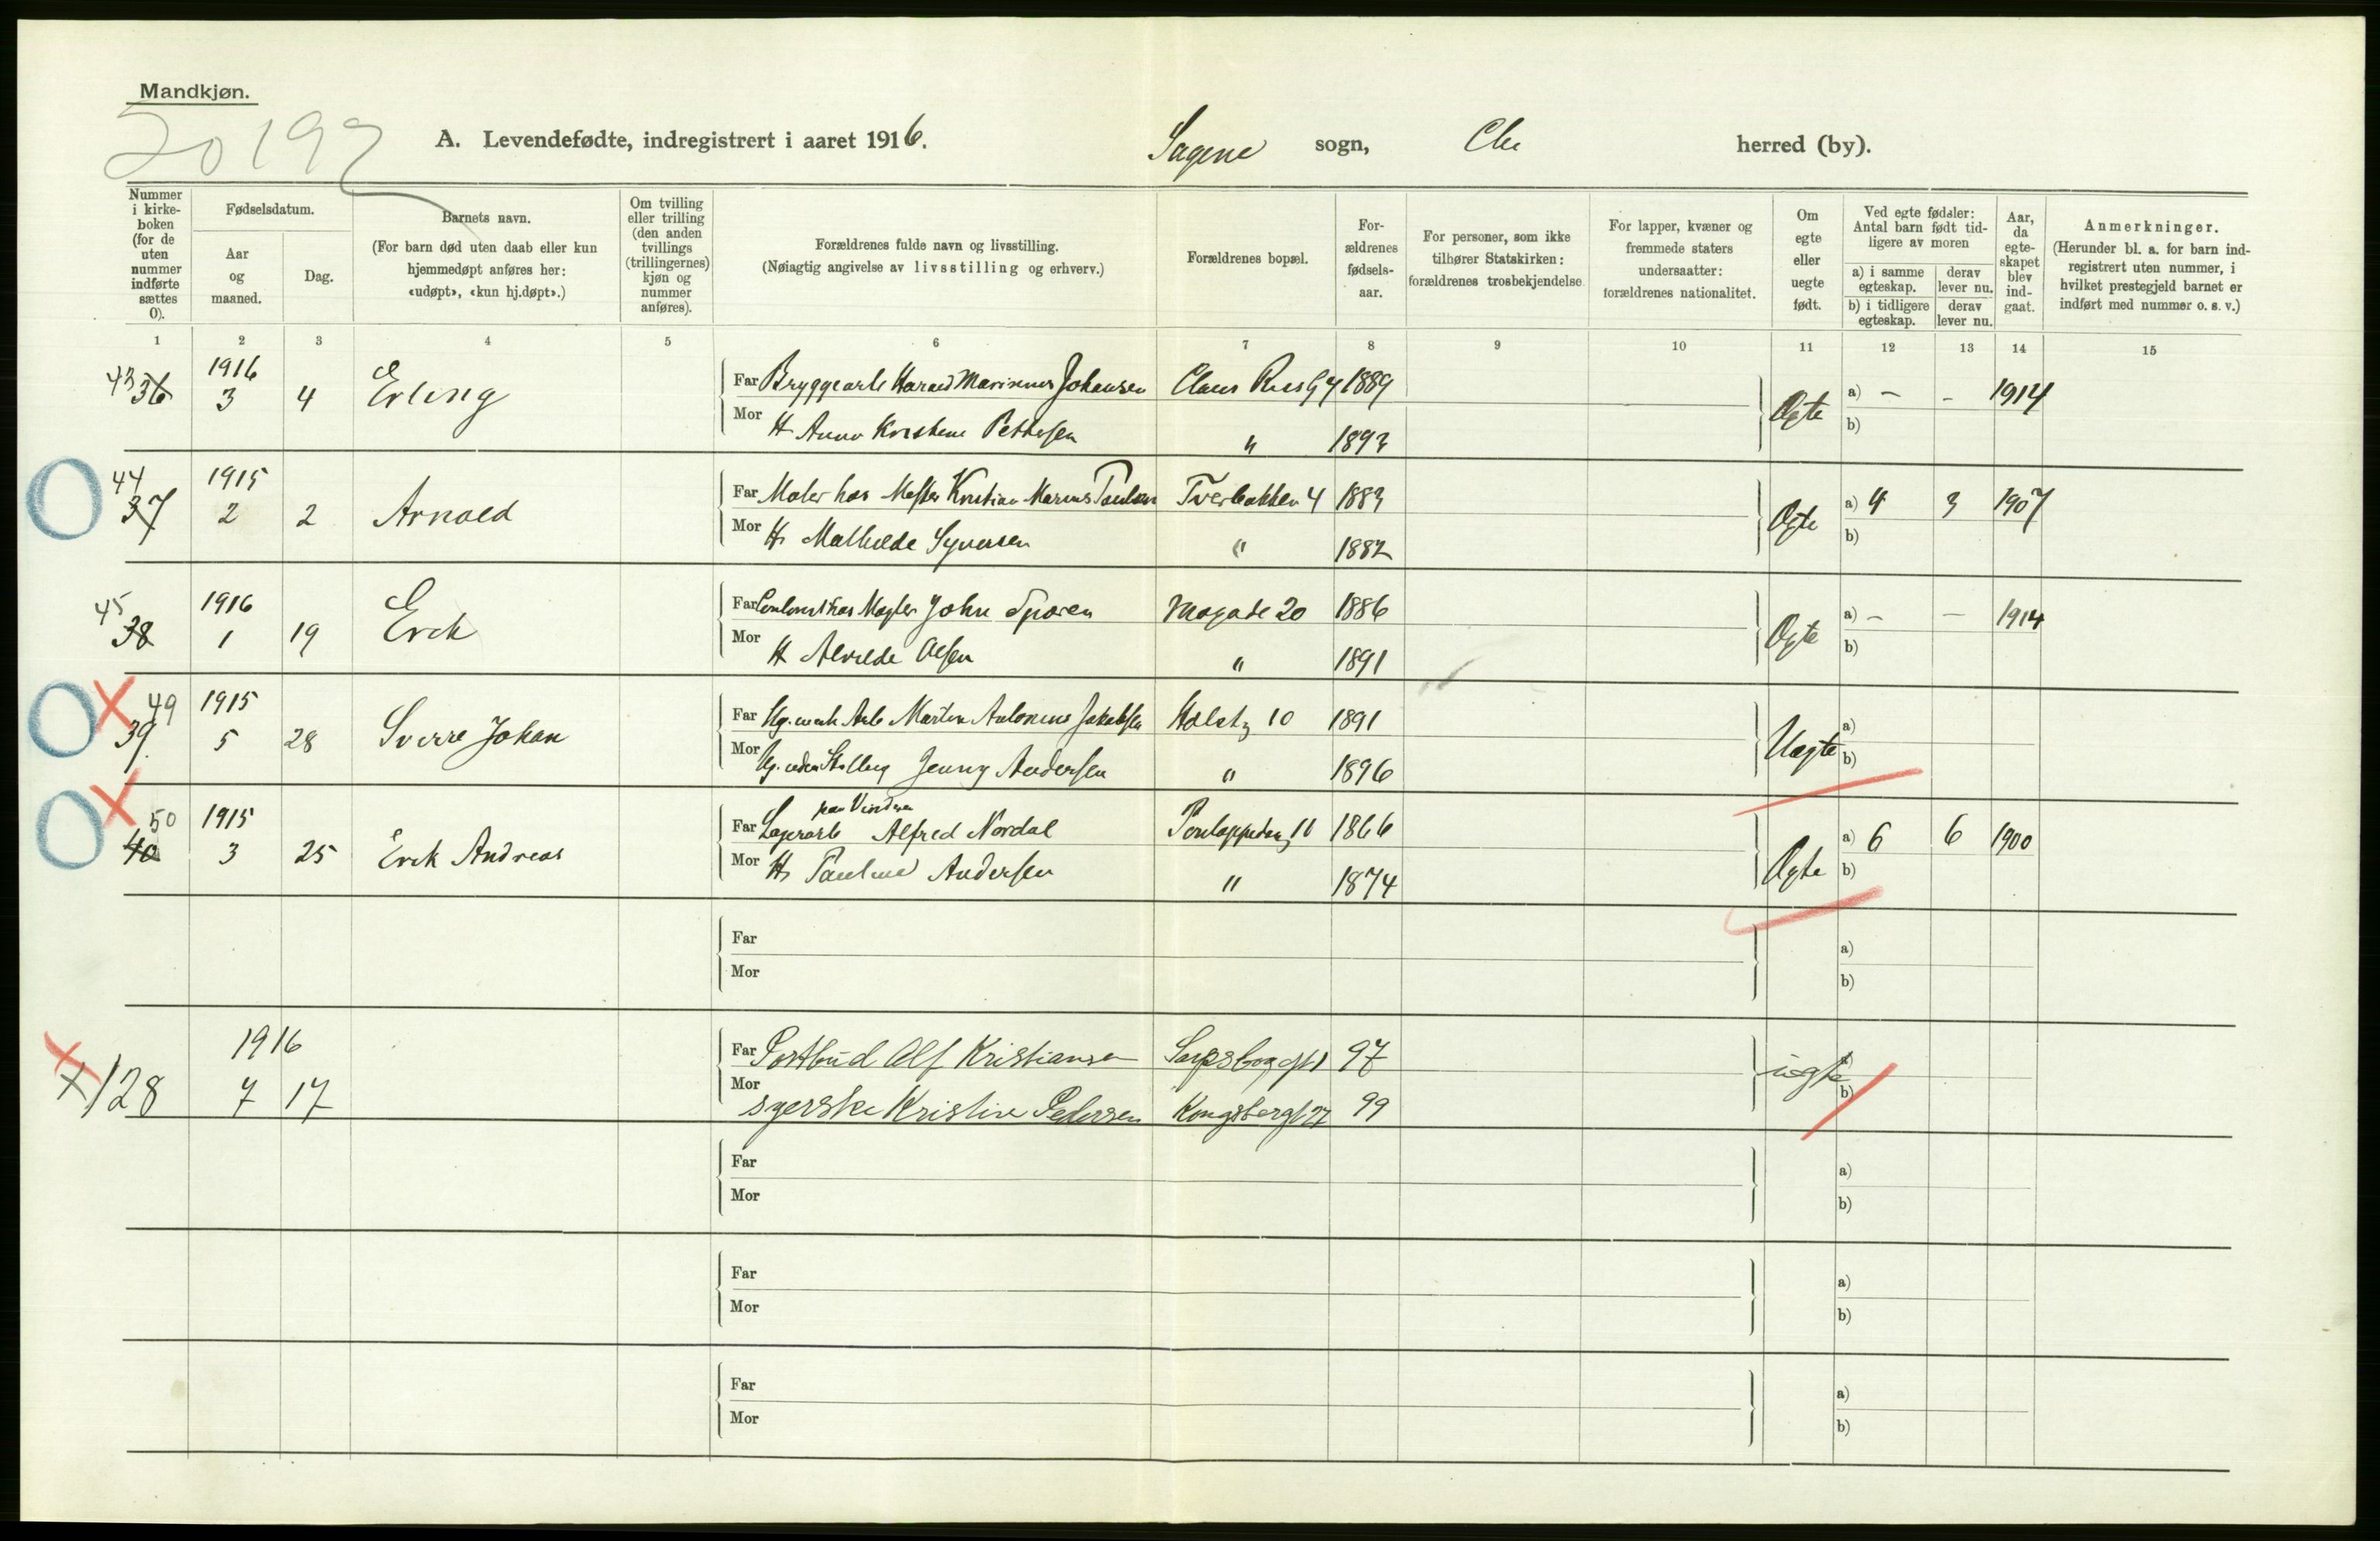 Mandkjøn.
20197
A. Levendefødte, indregistrert i aaret 1916. Sagene sogn, Chr herred (by).
Nummer i kirkeboken (for de uten nummer indførte sættes 0).
Fødselsdatum.
Aar og maaned.
Dag.
Barnets navn.
(For barn død uten daab eller kun hjemmedøpt anføres her: «udøpt», «kun hj.døpt».)
Om tvilling eller trilling (den anden tvillings (trillingernes) kjøn og nummer anføres).
Forældrenes fulde navn og livsstilling.
(Nøiagtig angivelse av livsstilling og erhverv.)
Forældrenes bopæl.
Forældrenes fødselsaar.
For personer, som ikke tilhører Statskirken: forældrenes trosbekjendelse
For lapper, kvæner og fremmede staters undersaatter: forældrenes nationalitet.
Om egte eller uegte født.
Ved egte fødsler: Antal barn født tidligere av moren
a) i samme egteskap.
derav lever nu.
b) i tidligere egteskap.
derav lever nu.
Aar, da egteskapet blev indgaat.
Anmerkninger.
(Herunder bl. a. for barn indregistrert uten nummer, i hvilket prestegjeld barnet er indført med nummer o. s. v.)
1 2 3 4 5 6 7 8 9 10 11 12 13 14 15
43 36 1916 3 4 Erling Far Bryggearb Harald Marinius Johansen Claus Riis G 4 1889 Egte a) – – 1914
Mor H Anna Kristine Pettersen " 1893 b)
44 37 1915 2 2 Arnold Far Maler hos Mester Kristian Marius Paulsen Tverbakken 4 1883 Egte a) 4 3 1907
Mor H Mathilde Syversen " 1882 b)
45 38 1916 1 19 Erik Far hos Mægler John Sporen Mogade 20 1886 Egte a) – – 1914
Mor H Alvilde Olsen " 1891 b)
49 39 1915 5 28 Sverre Johan Far Ug. Arb Martin Antonius Jakobsen Holstg 10 1891 Uegte a)
Mor Ug. uden Stilling Jenny Andersen " 1896 b)
50 40 1915 3 25 Erik Andreas Far Lagerarb paa Vinderen Alfred Nordal 11 1866 Egte a) 6 6 1900
Mor H Pauline Andersen " 1874 b)
Far a)
Mor b)
128 1916 7 17 Far Postbud Alf Kristiansen Sarpsborggt 1 97 uegte a)
Mor syerske Kristine Pedersen Kongsberggt 27 99 b)
Far a)
Mor b)
Far a)
Mor b)
Far a)
Mor b)